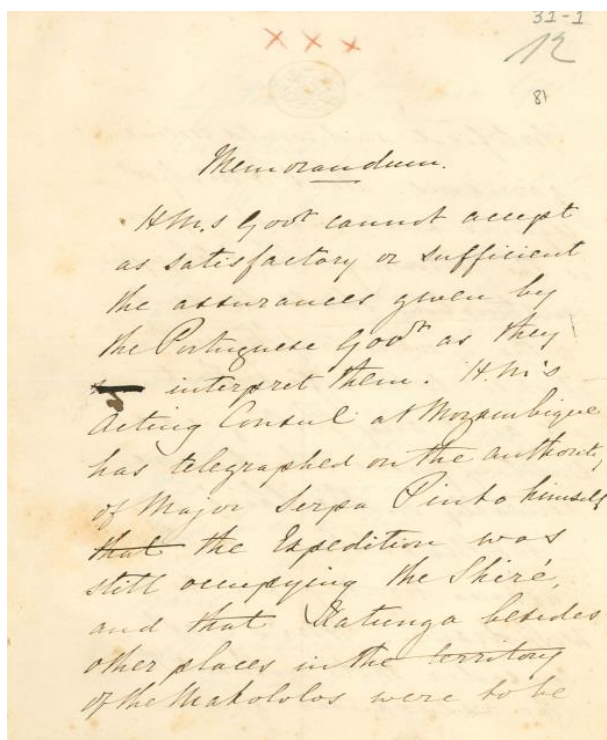 31-1
12
81
Memorandum.
H.M.s Govt cannot accept
as satisfactory or sufficient
the assurances given by
the Portuguese Govt as they
interpret them. H.M's
Acting Consul at Mozambique
has telegraphed on the authority
of Major Serpa Pinto himself
that the Expedition was
still occupying the Shiré,
and that Katunga besides
other places in the territory
of the Makololos were to be